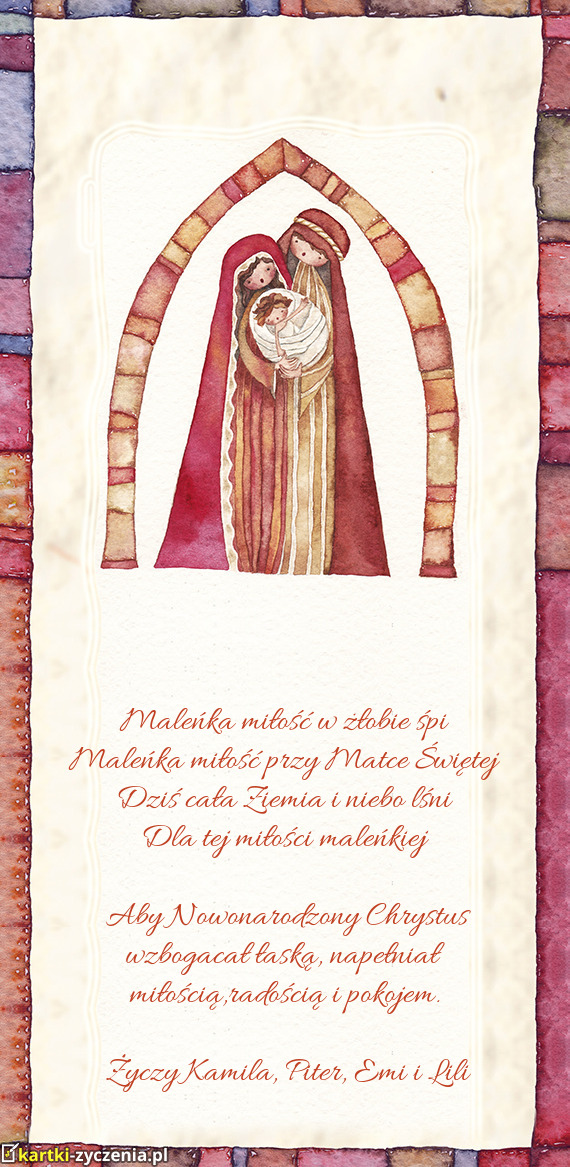 Maleńka miłość w żłobie śpi
Maleńka miłość przy Matce Świętej
Dziś cała Ziemia i niebo lśni
Dla tej miłości maleńkiej
Aby Nowonarodzony Chrystus
wzbogacał łaską, napełniał
miłością,radością i pokojem.
Życzy Kamila, Piter, Emi i Lili
kartki-zyczenia.pl